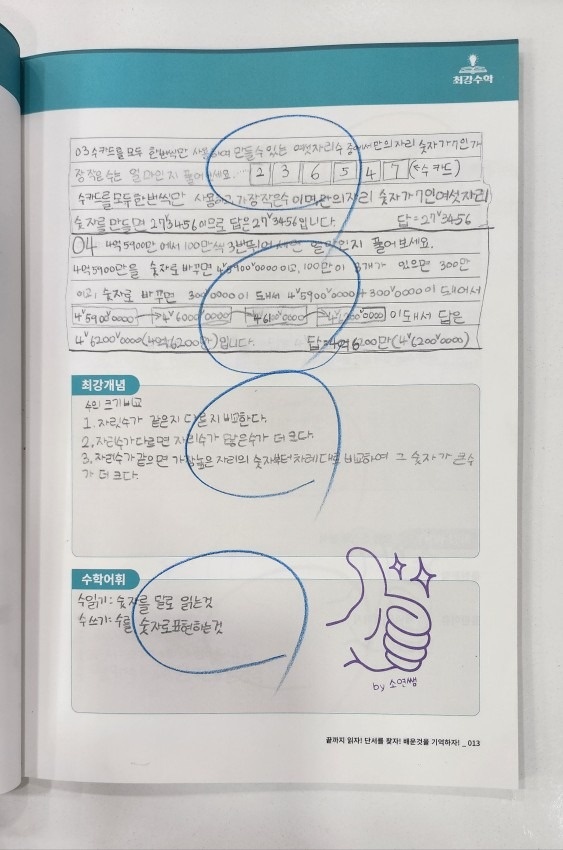 최강수학
03 수카드를 모두 한번씩만 사용하여 만들수 있는 여섯자리수 중에서 만의 자리 숫자가 7인 가
장 작은 수는 얼마인지 풀어보세요. 2 3 6 5 4 7 (수 카드)
수카드를 모두 한번씩만 사용하고 가장작은수 이며, 만의 자리 숫자가 7인 여섯 자리
숫자를 만들면 27˅3456 이므로 답은 27˅3456입니다. 답 = 27˅3456
04 4억 5900만 에서 100만씩 3번 얼마인지 풀어보세요.
4억 5900만을 숫자로 바꾸면 4˅5900˅0000 이고, 100만이 3개가 있으면 300만
이고, 숫자로 바꾸면 300˅0000이 돼서 4˅5900˅0000 + 300˅0000 이 돼어서
4˅5900˅0000 4˅6000˅0000 4˅6100˅0000 4˅6200˅0000 이 돼서 답은
4˅6200˅0000 (4억6200만)입니다. 답 = 4억 6200만 (4˅6200˅0000)
최강개념
수의 크기비교
1. 자릿수가 같은지 다른지 비교한다.
2. 자리수가 다르면 자리수가 많은수가 더 크다.
3. 자리수가 같으면 가장높은 자리의 숫자부터 차례대로 비교하여 그 숫자가 큰 수
가 더 크다.
수학어휘
수읽기 : 숫자를 말로 읽는것
수 쓰기 : 수를 숫자로 표현하는것
by 소연쌤
끝까지 읽자! 단서를 찾자! 배운것을 기억하자! _ 013